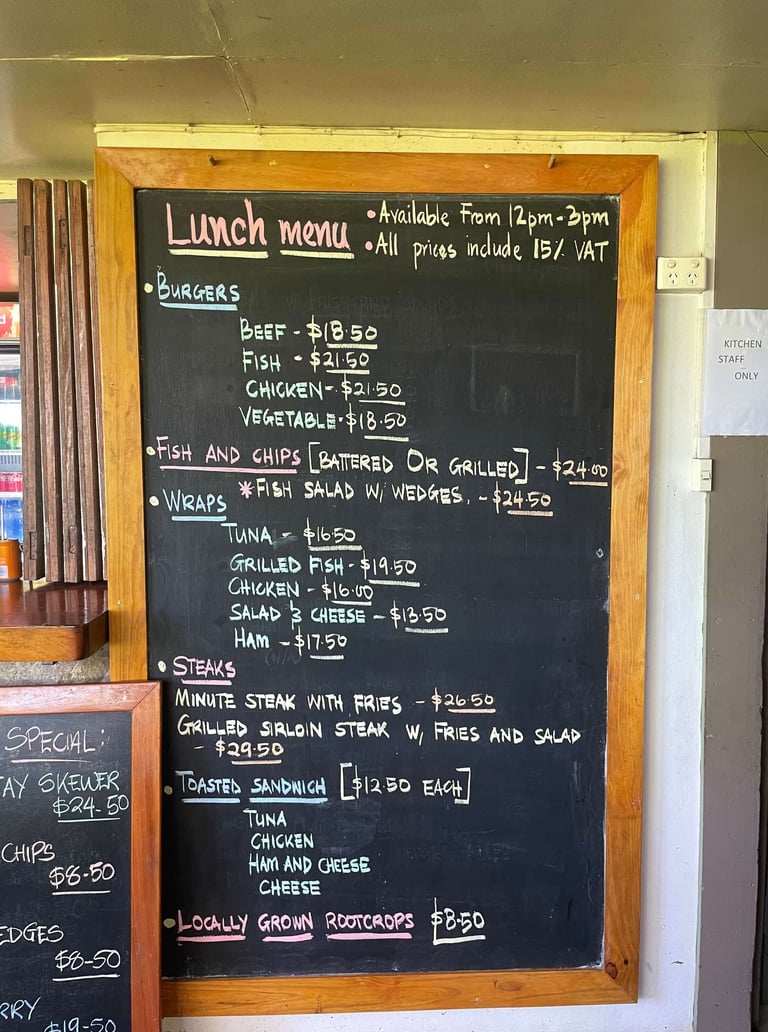 Lunch menu
• Available From 12pm-3pm
• All prices include 15% VAT
• BURGERS
BEEF - $18.50
FISH - $21.50
CHICKEN - $21.50
VEGETABLE - $18.50
• FISH AND CHIPS [BATTERED OR GRILLED] - $24.00
* FISH SALAD W/ WEDGES. - $24.50
• WRAPS
TUNA - $16.50
GRILLED FISH - $19.50
CHICKEN - $16.00
SALAD & CHEESE - $13.50
HAM - $17.50
• STEAKS
MINUTE STEAK WITH FRIES - $26.50
GRILLED SIRLOIN STEAK W/ FRIES AND SALAD
- $29.50
• TOASTED SANDWICH [$12.50 EACH]
TUNA
CHICKEN
HAM AND CHEESE
CHEESE
• LOCALLY GROWN ROOTCROPS $8.50
SPECIAL:
TAY SKEWER
$24.50
CHIPS
$8-50
EDGES
$8-50
RRY
$19-50
KITCHEN
STAFF
ONLY